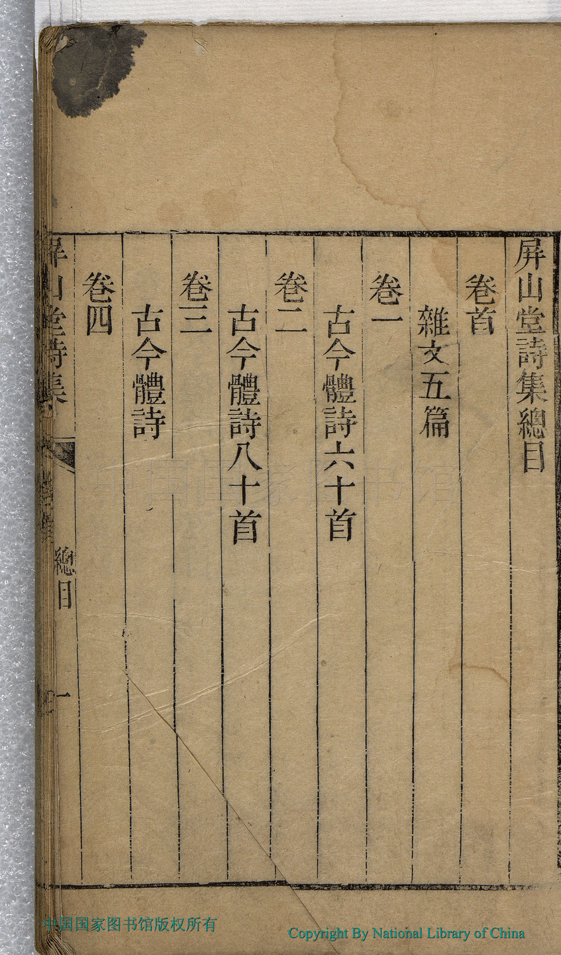 屏山堂詩集總目
卷首
雜文五篇
卷一
古今體詩六十首
卷二
古今體詩八十首
卷三
古今體詩
卷四
屏山堂詩集
總目
一
中国国家图书馆版权所有
Copyright By National Library of China